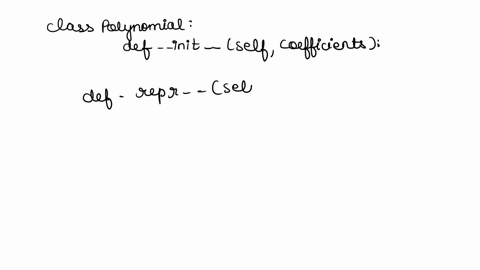 class Polynomial:
def --init -- (self, coefficients):
def - repr-- (sel